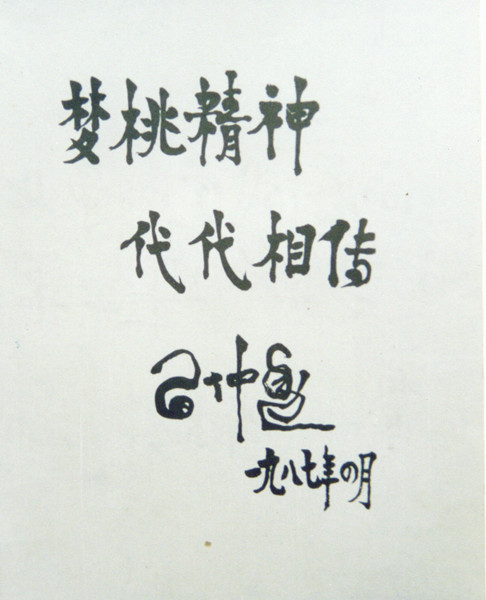 梦桃精神
代代相传
习仲勋
一九八七年四月